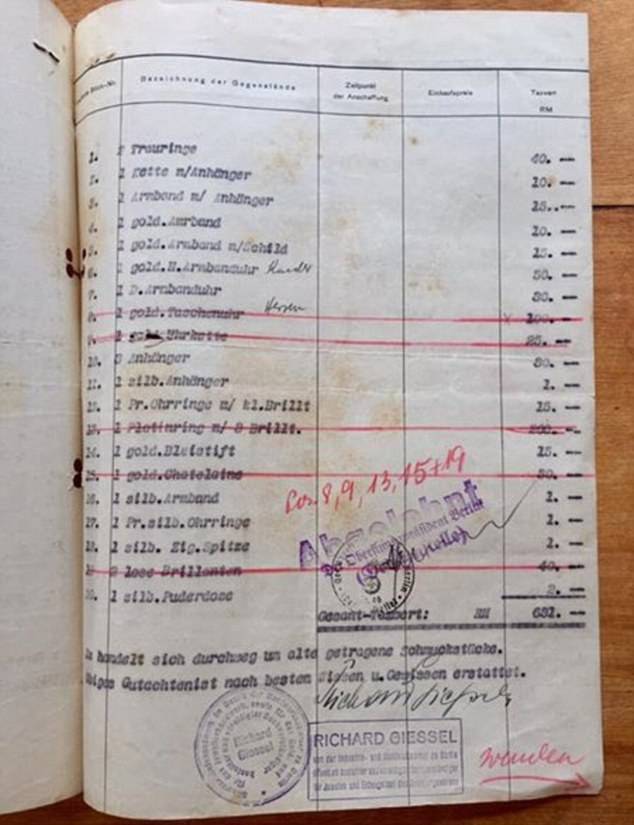 Bezeichnung der Gegenstände
Zeitpunkt der Anschaffung
Einkaufspreis
Taxwert RM
1. 2 Trauringe 40.--
2. 1 Kette m/Anhänger 10.--
3. 1 Armband m/ Anhänger 15.--
4. 1 gold.Amrband 10.--
5. 1 gold.Armband m/Schild 15.--
6. 1 gold.H.Armbanduhr 50.--
7. 1 D.Armbanduhr 30.--
8. 1 gold.Taschenuhr Herren x 100.--
9. 1 gold.Uhrkette 25.--
10. 3 Anhänger
11. 1 silb.Anhänger 1.--
12. 1 Pr.Ohrringe m/ kl.Brillt 15.--
13. 1 Platinring m/ 3 Brillt. 200.--
14. 1 gold.Bleistift 15.--
15. 1 gold.Chatelaine
Pos. 8, 9, 13, 15+19
16. 1 silb.Armband 1.--
17. 1 Pr.silb.Ohrringe 1.--
18. 1 silb. Zig.Spitze 1.--
Abgelehnt
Oberfinanzpräsident Berlin
19 2 lose Brillanten 40.--
1 silb.Puderdose 2.--
Gesamt-Taxwert: RM 631.--
Es handelt sich durchweg um alte getragene Schmuckstücke.
Gutachten ist nach bestem Wissen u.Gewissen erstattet.
Richard Giessel
Richard Giessel
RICHARD GIESSEL
von der Industrie- und Handelskammer zu Berlin
wenden